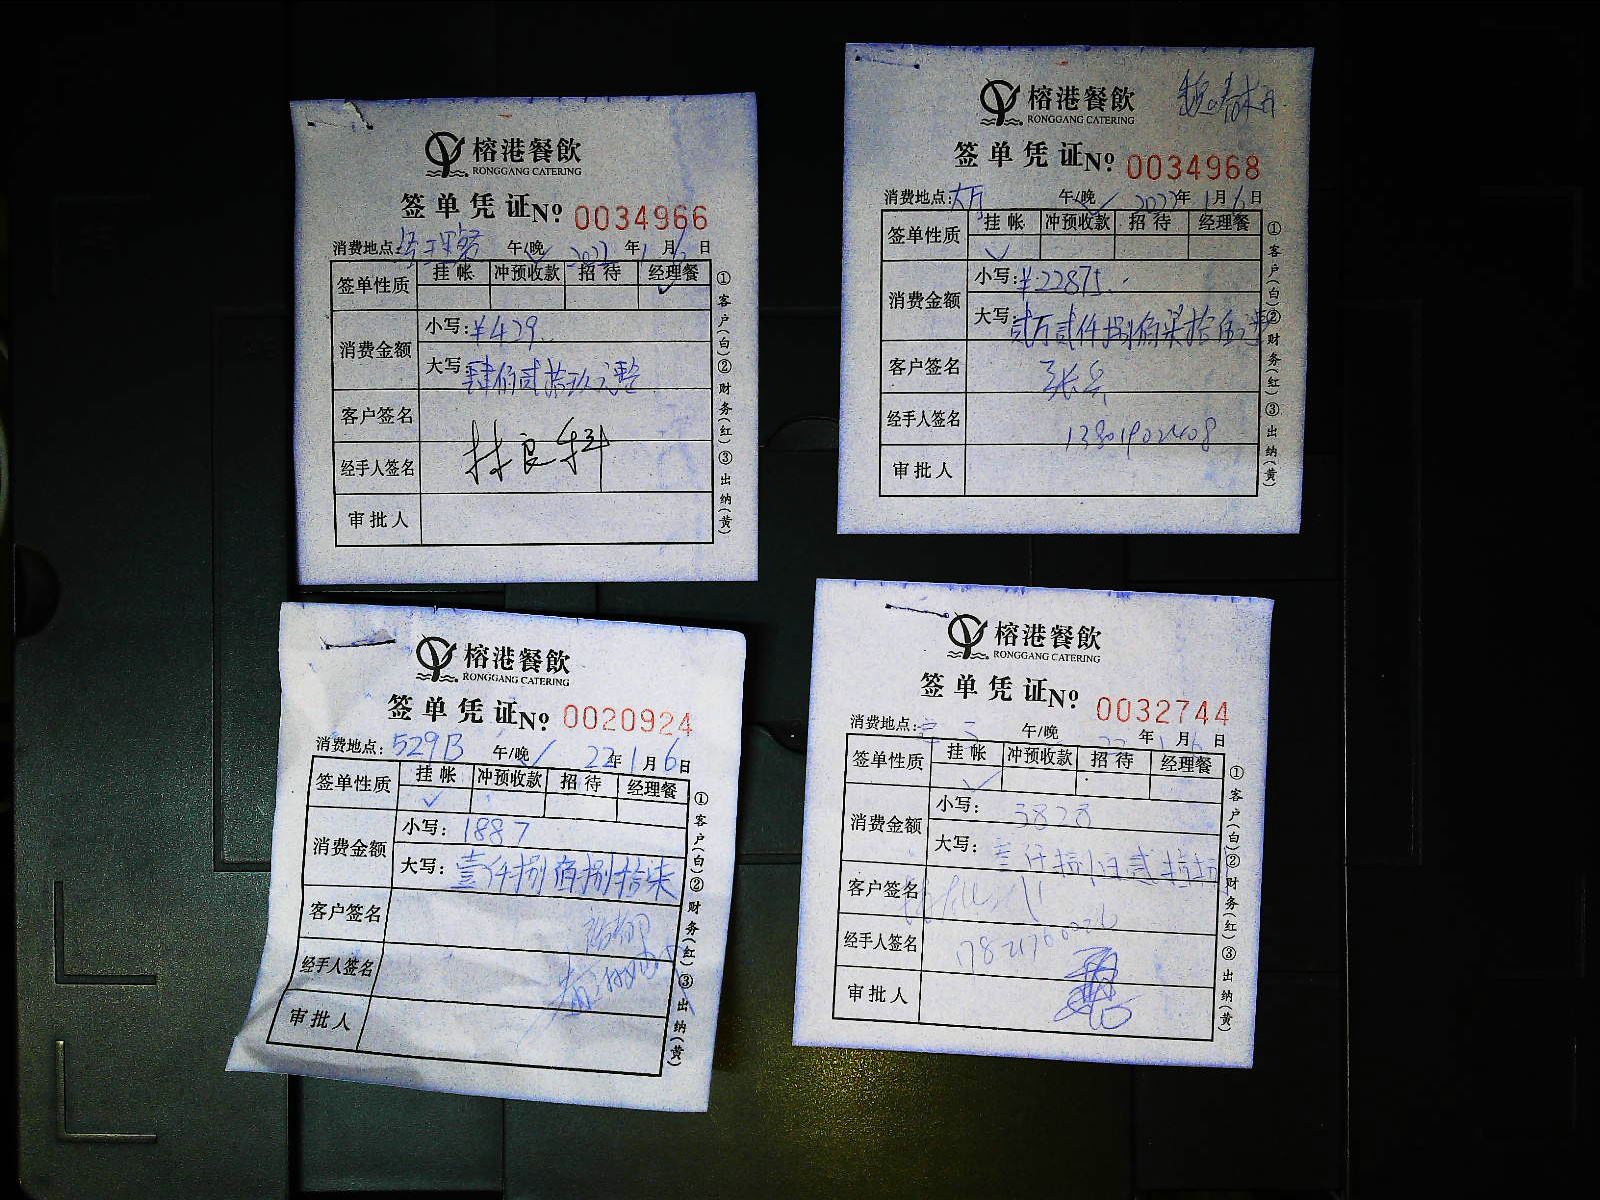 榕港餐飲
RONGGANG CATERING
签单凭证 № 0034966
消费地点: 经理餐 午/晚 2022年1月6日
签单性质 挂帐 冲预收款 招待 经理餐
消费金额
小写: ¥429
大写 肆佰贰拾玖元整
客户签名
林良科
经手人签名
审批人
①客户(白)②财务(红)③出纳(黄)
榕港餐飲
RONGGANG CATERING
签单凭证 № 0034968
消费地点: 大厅 午/晚 2022年1月6日
签单性质 挂帐 冲预收款 招待 经理餐
消费金额
小写: ¥22875
大写: 贰万贰仟捌佰柒拾伍元整
客户签名 张兵
经手人签名 13801902408
审批人
①客户(白)②财务(红)③出纳(黄)
榕港餐飲
RONGGANG CATERING
签单凭证 № 0020924
消费地点: 529B 午/晚 22年1月6日
签单性质 挂帐 冲预收款 招待 经理餐
消费金额
小写: 1887
大写: 壹仟捌佰捌拾柒
客户签名
经手人签名
审批人
①客户(白)②财务(红)③出纳(黄)
榕港餐飲
RONGGANG CATERING
签单凭证 № 0032744
消费地点: 午/晚 22年1月6日
签单性质 挂帐 冲预收款 招待 经理餐
消费金额
小写: 3828
大写:
客户签名
经手人签名
审批人
①客户(白)②财务(红)③出纳(黄)